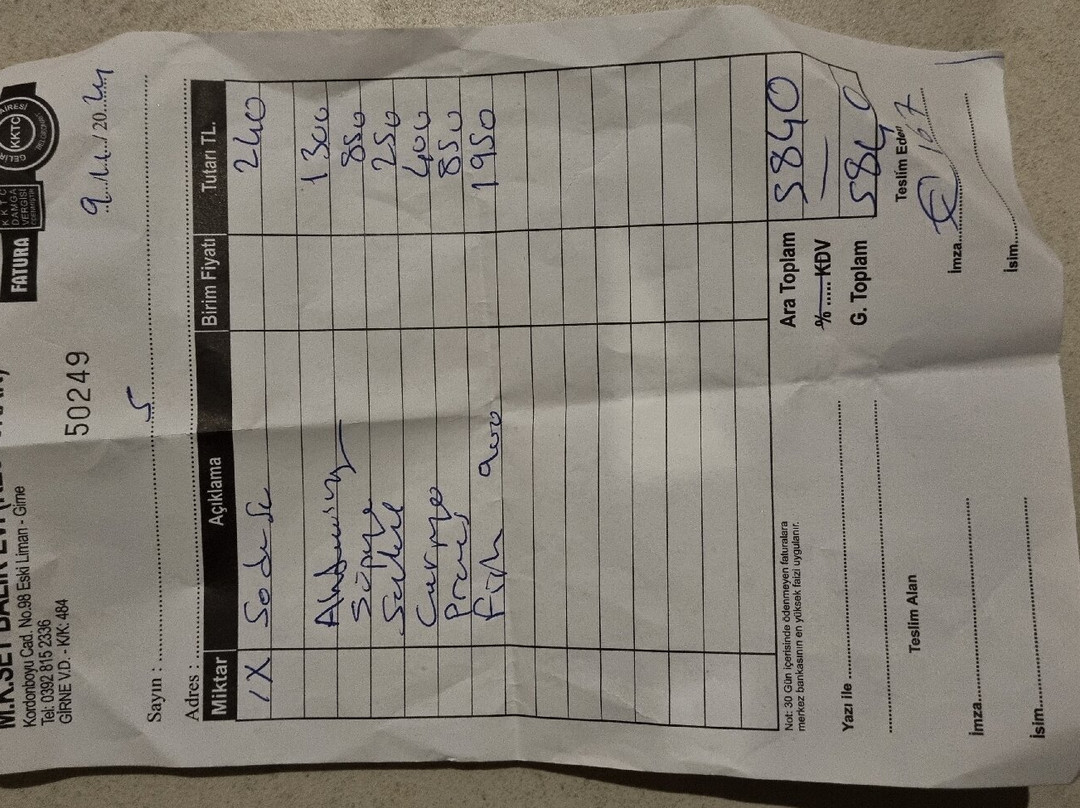 Kordonboyu Cad. No.98 Eski Liman - Girne
Tel: 0392 815 2336
GİRNE V.D. - K/K: 484
FATURA
KKTC
DAMGA
VERGİSİ
KKTC
GELİR
50249
9.11./20.24
Sayın : 5
Adres :
Miktar Açıklama Birim Fiyatı Tutarı TL.
1X 240
1300
850
250
400
850
Fish 900 1950
Ara Toplam 5840
% ..... KDV —
G. Toplam 5840
Not: 30 Gün içerisinde ödenmeyen faturalara
merkez bankasının en yüksek faizi uygulanır.
Yazı ile
Teslim Alan
İmza
İsim
Teslim Eden
İmza
İsim